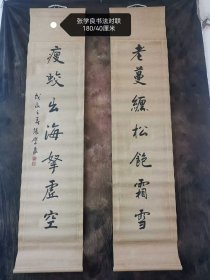 张学良书法对联
180/40厘米
老蔓缠松饱霜雪
瘦蛟出海拏虚空